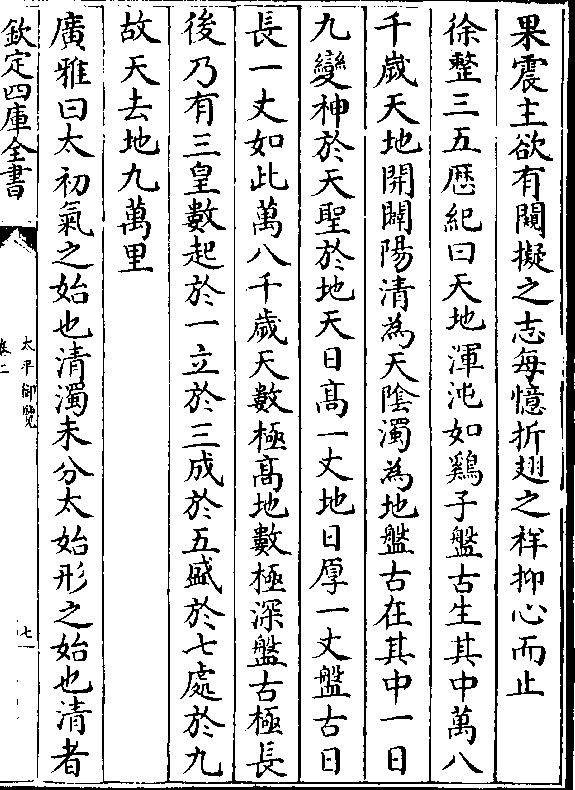 果震主欲有闚擬之志每憶折翅之祥抑心而止
徐整三五厯紀曰天地渾沌如鷄子盤古生其中萬八
千歲天地開闢陽清為天陰濁為地盤古在其中一日
九變神於天聖於地天日髙一丈地日厚一丈盤古日
長一丈如此萬八千歲天數極髙地數極深盤古極長
後乃有三皇數起於一立於三成於五盛於七處於九
故天去地九萬里
廣雅曰太初氣之始也清濁未分太始形之始也清者
欽定四庫全書
太平御覽
卷二
七